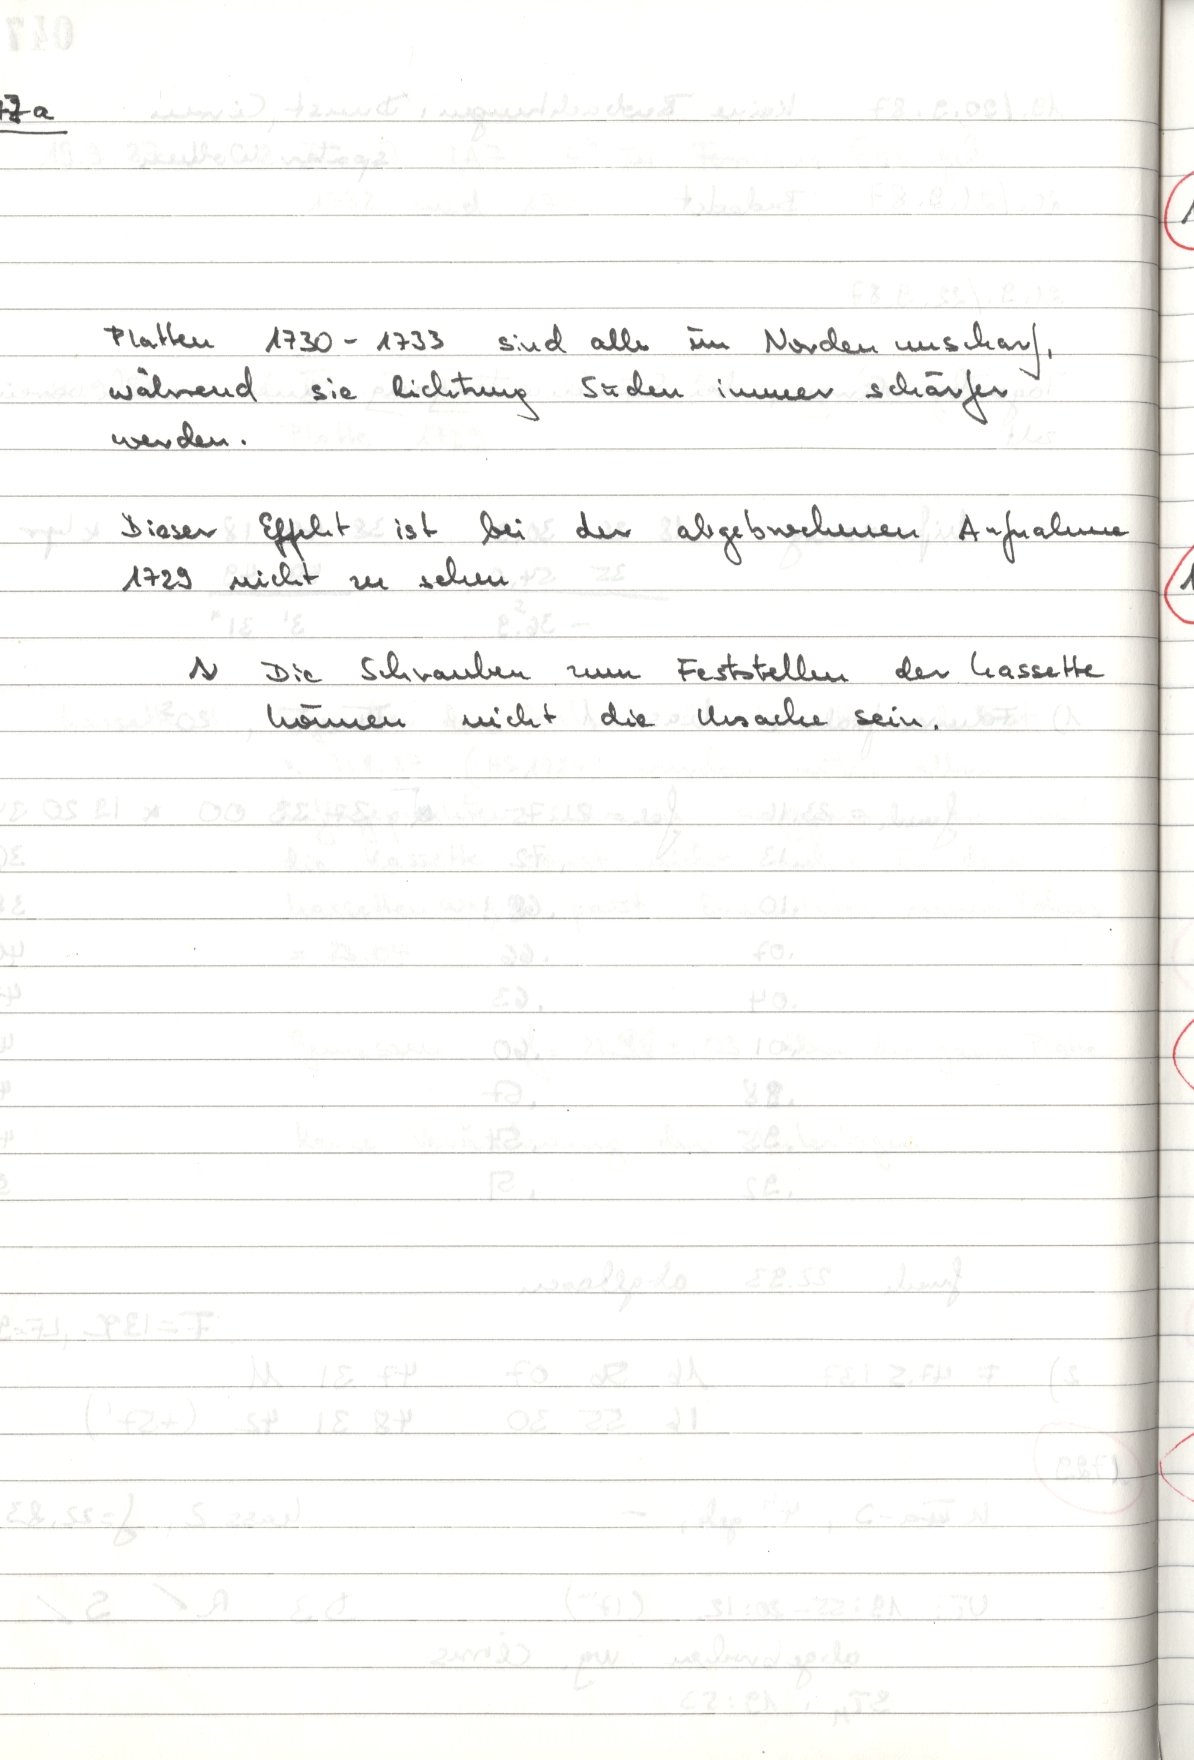 47a
Platten 1730 - 1733 sind alle im Norden unscharf,
während sie Richtung Süden immer schärfer
werden.
Dieser Effekt ist bei der abgebrochenen Aufnahme
1729 nicht zu sehen
Die Schrauben zum Feststellen der Kassette
können nicht die Ursache sein.